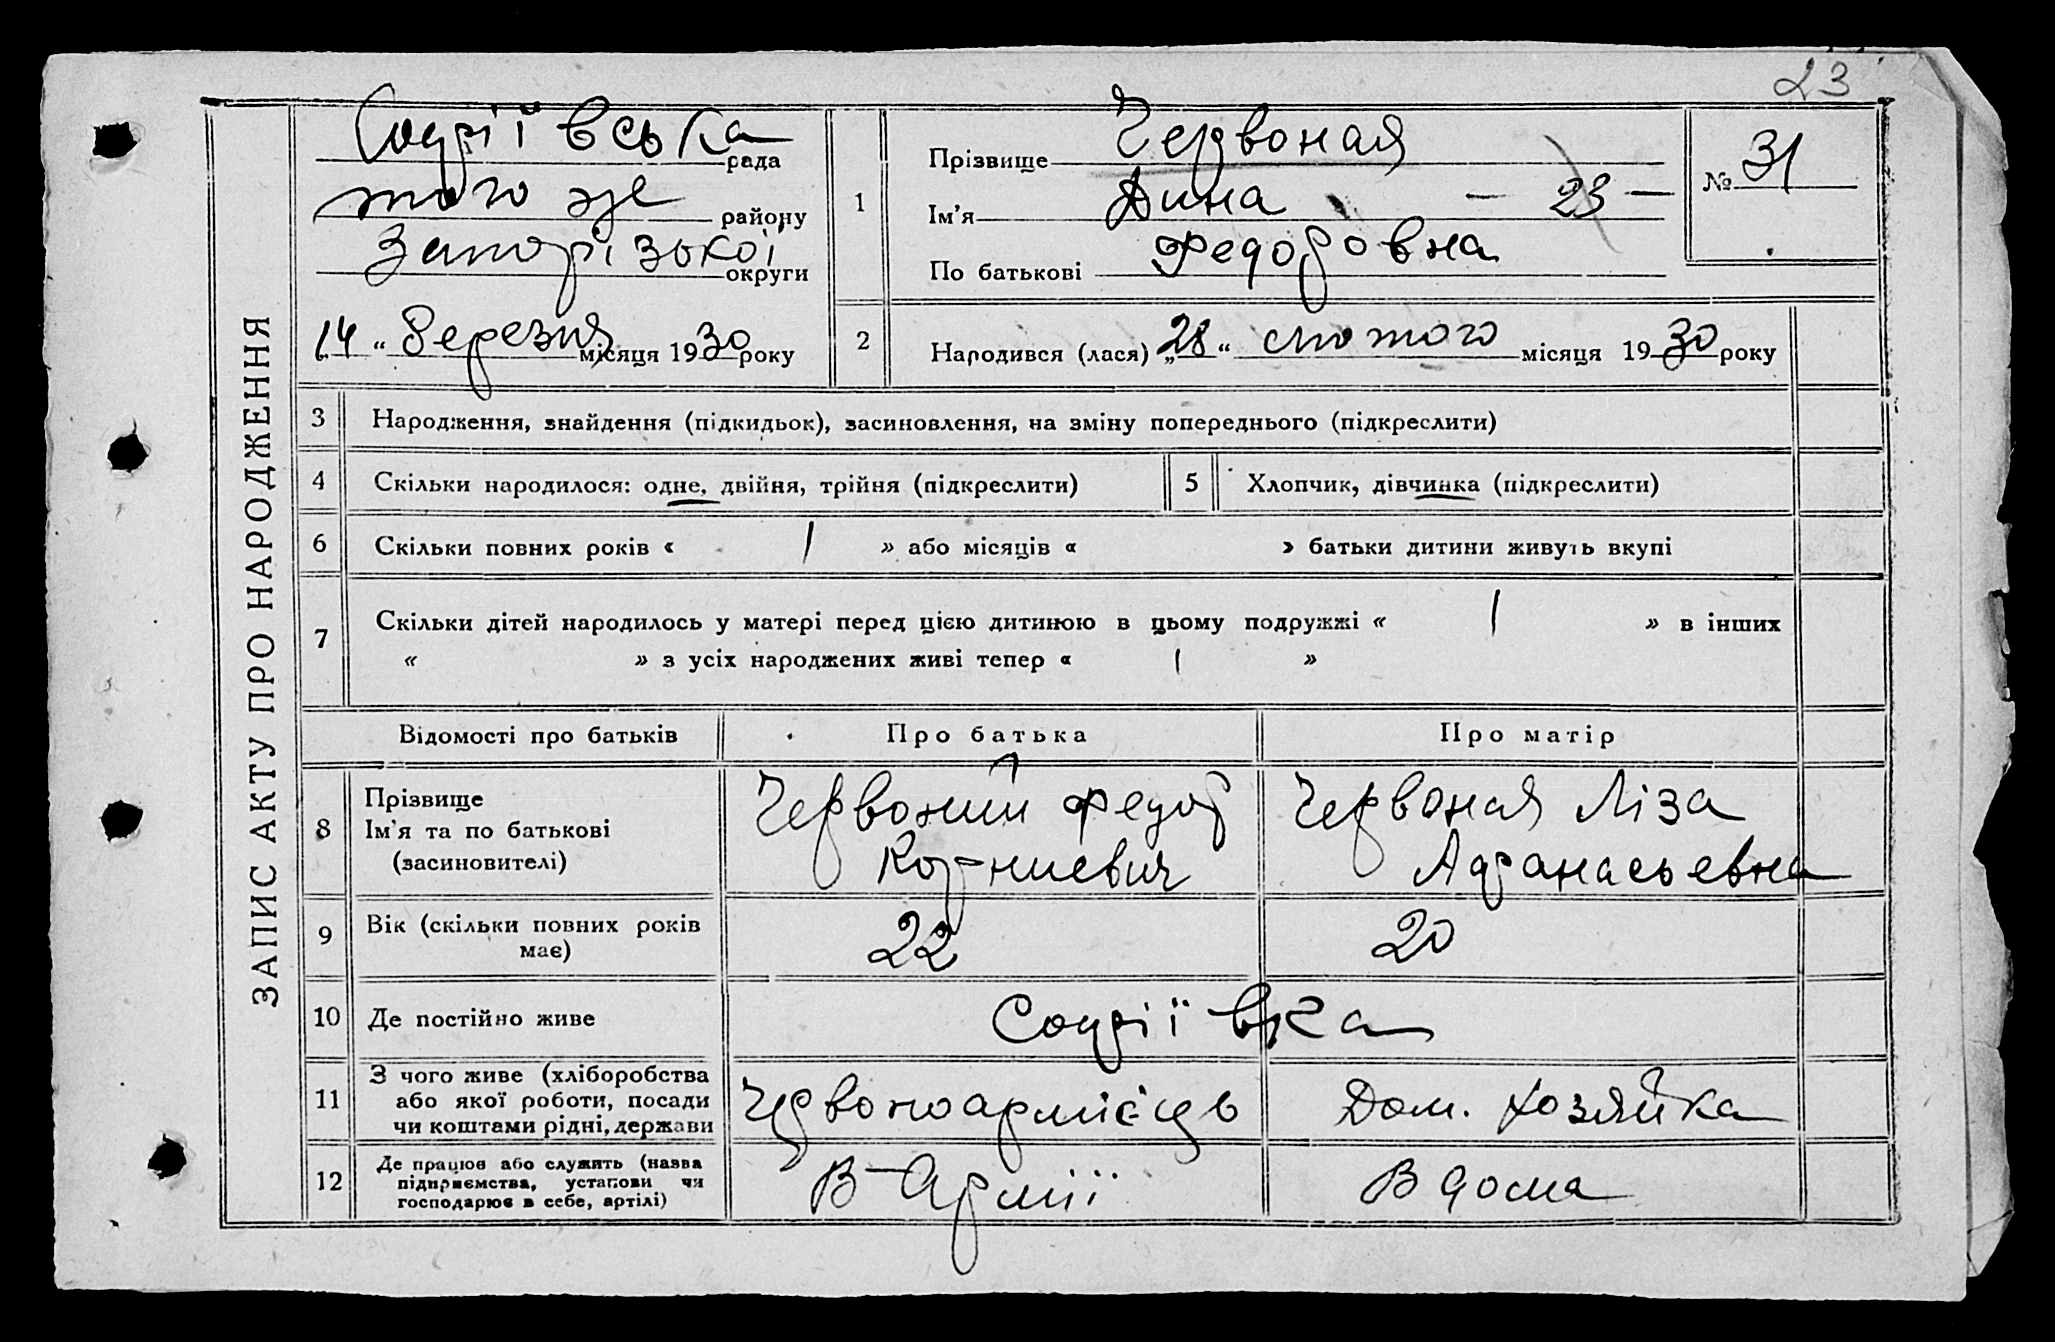 23
ЗАПИС АКТУ ПРО НАРОДЖЕННЯ
Софіївська рада
того же району
Запорізької округи
„14“ березня місяця 1930 року
1
Прізвище Червоная
Ім'я Дина — 23 —
По батькові Федоровна
№ 31
2
Народився (лася) „28“ лютого місяця 1930 року
3 Народження, знайдення (підкидьок), засиновлення, на зміну попереднього (підкреслити)
4 Скільки народилося: одне, двійня, трійня (підкреслити)
5 Хлопчик, дівчинка (підкреслити)
6 Скільки повних років « 1 » або місяців « » батьки дитини живуть вкупі
7 Скільки дітей народилось у матері перед цією дитиною в цьому подружжі « 1 » в інших
« » з усіх народжених живі тепер « 1 »
Відомості про батьків
Про батька
Про матір
8
Прізвище
Ім'я та по батькові
(засиновителі)
Червоний Федор
Корниевич
Червоная Ліза
Афанасьевна
9
Вік (скільки повних років
має)
22
20
10 Де постійно живе
Софіївка
11
З чого живе (хліборобства
або якої роботи, посади
чи коштами рідні, держави
Червоноармієць
Дом. хозяйка
12
Де працює або служить (назва
підприємства, установи чи
господарює в себе, артілі)
В Армії
В дома